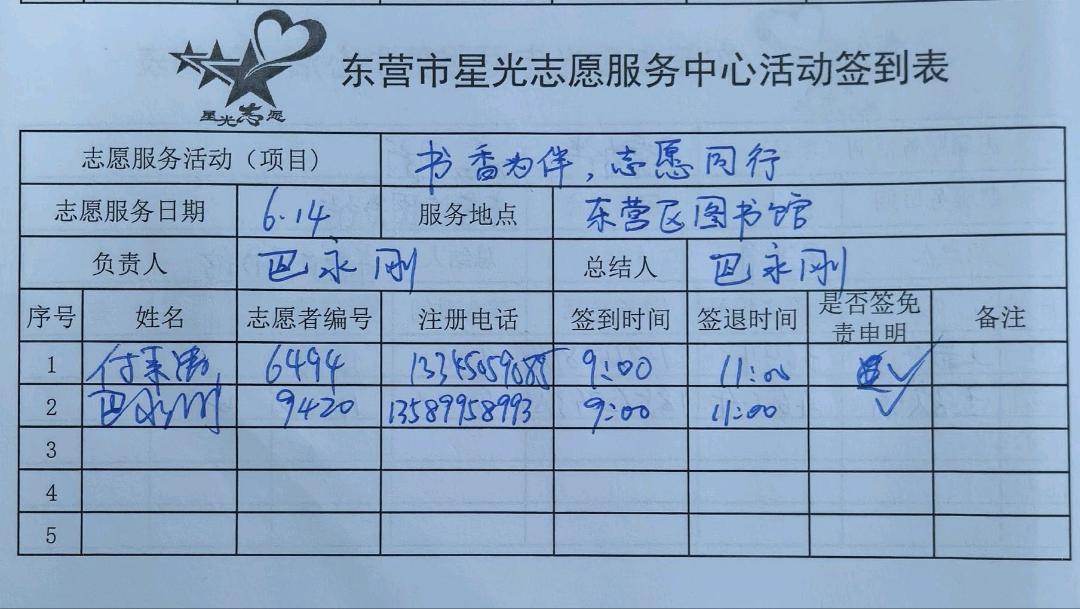 星光志愿
东营市星光志愿服务中心活动签到表
志愿服务活动（项目） 书香为伴，志愿同行
志愿服务日期 6.14 服务地点 东营区图书馆
负责人 巴永刚 总结人 巴永刚
序号 姓名 志愿者编号 注册电话 签到时间 签退时间 是否签免责申明 备注
1 6494 9:00 11:00 ✓
2 巴永刚 9420 13589958993 9:00 11:00 ✓
3
4
5